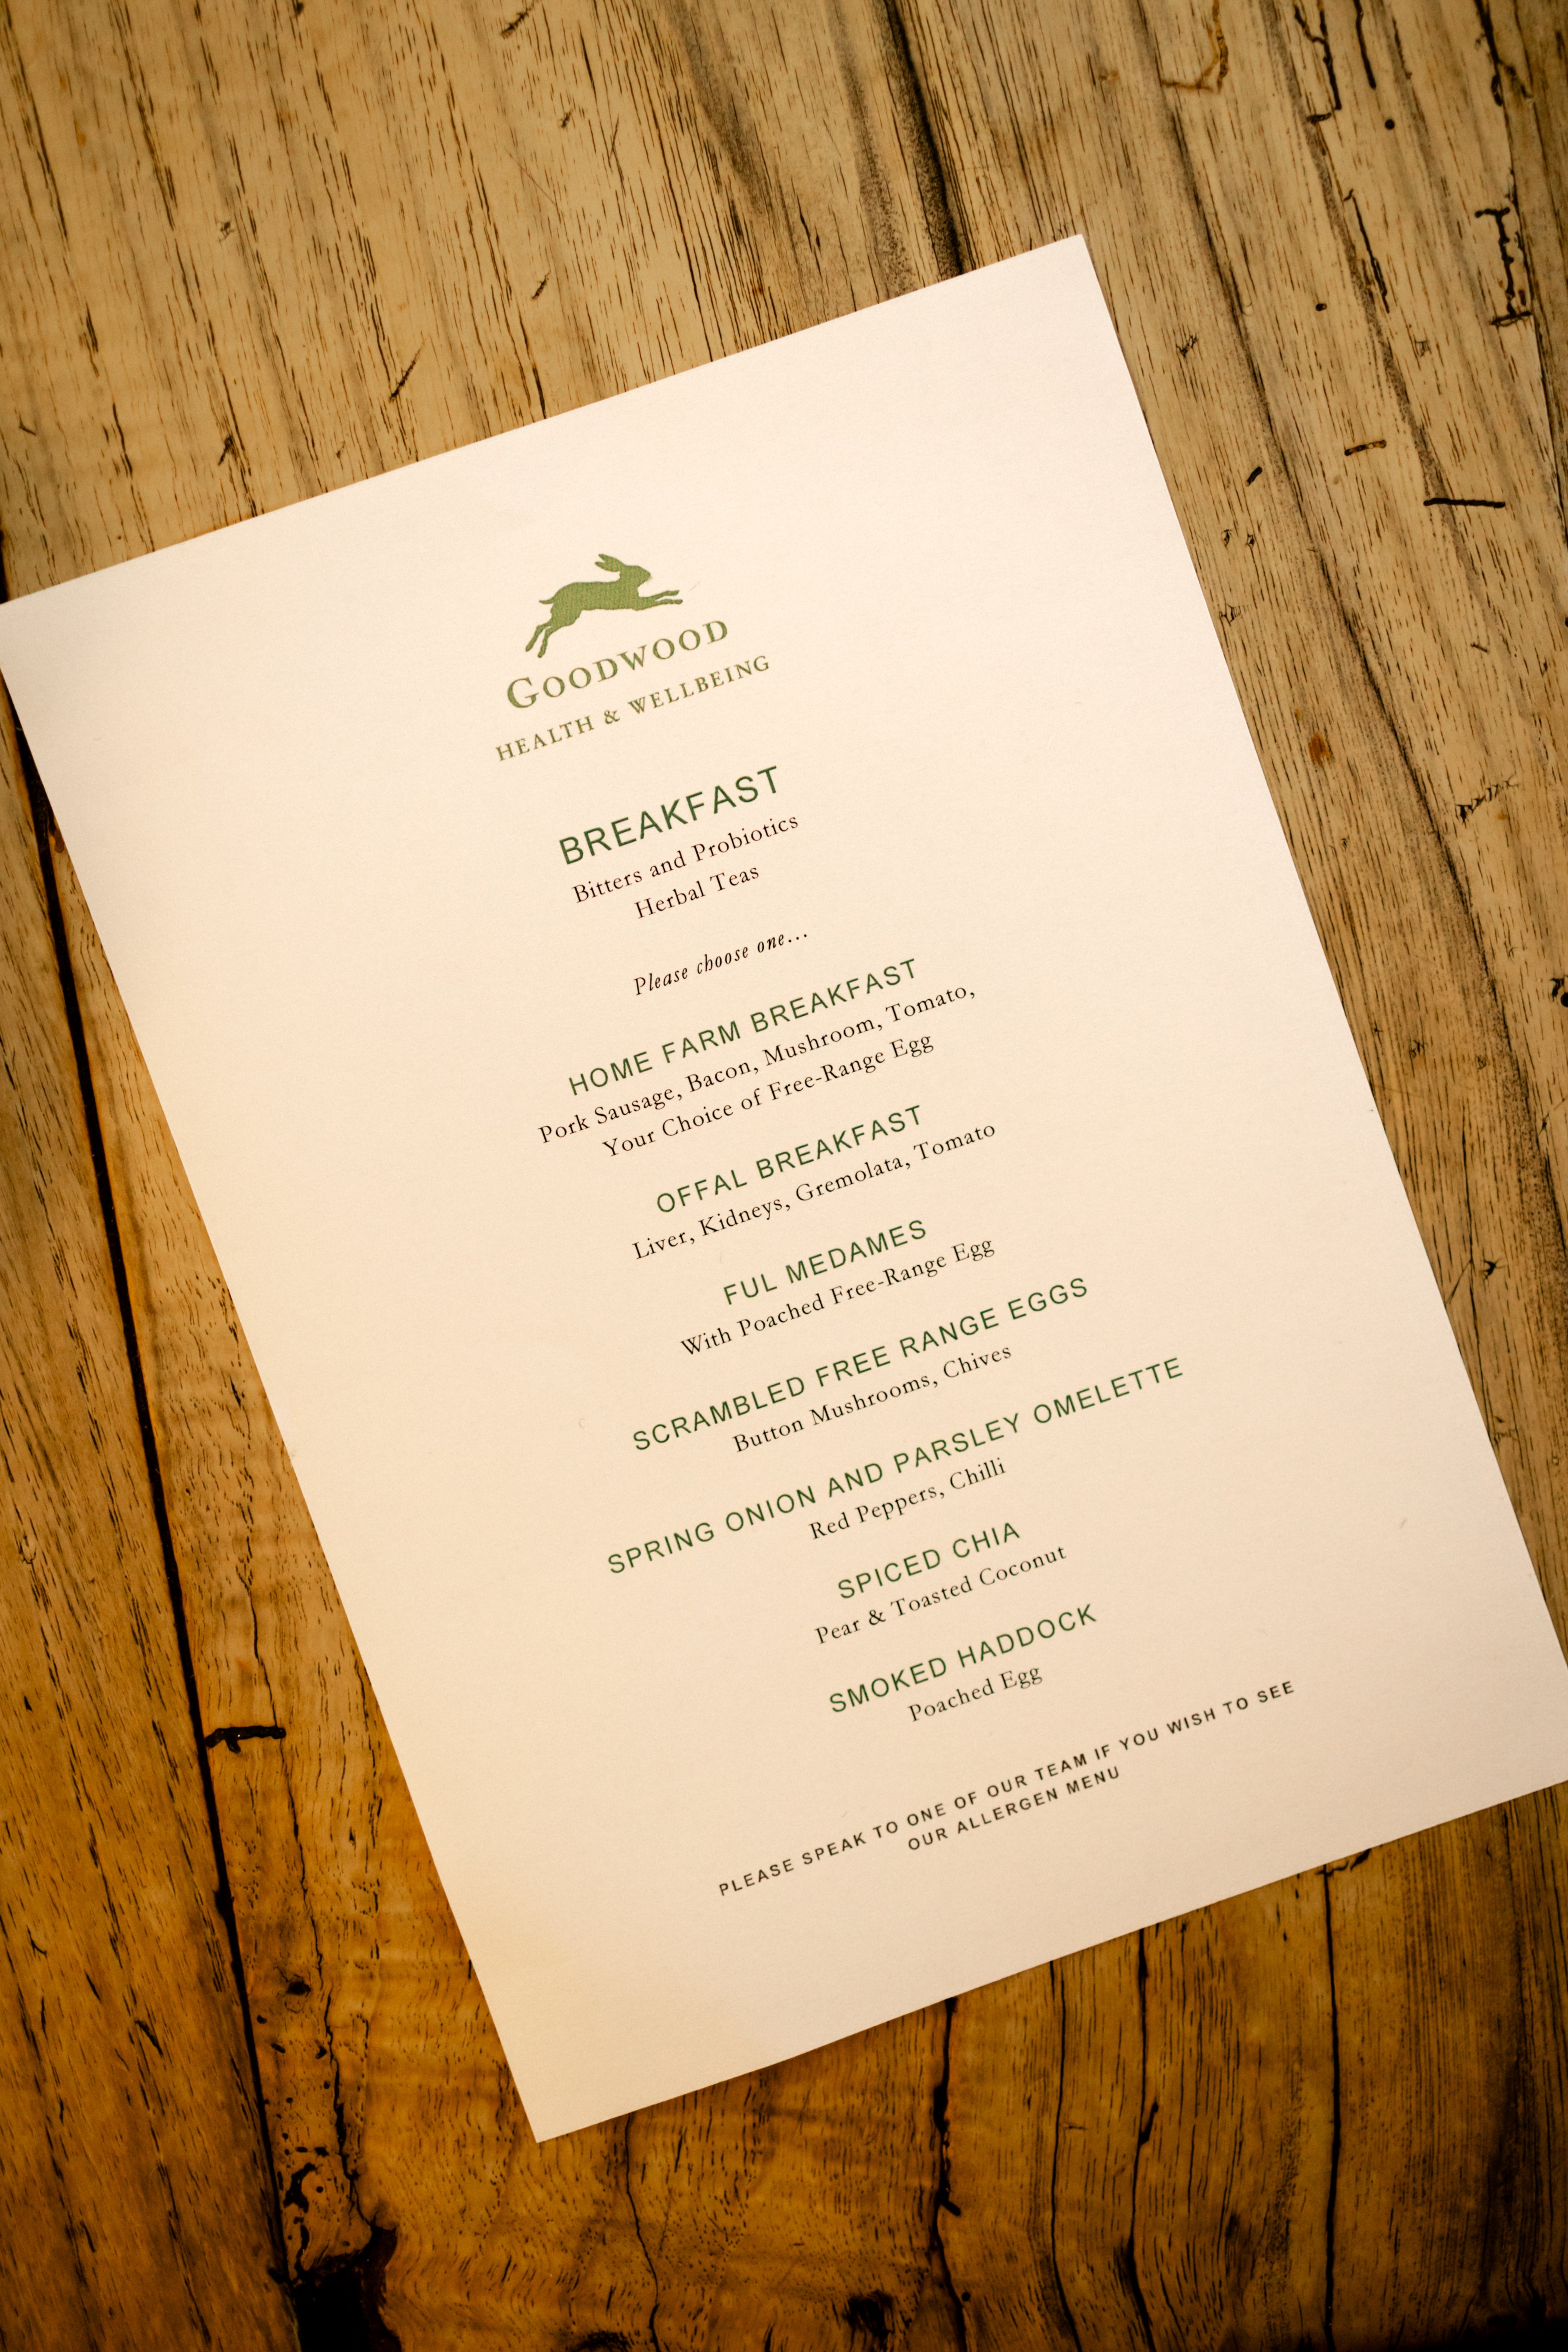 GOODWOOD
HEALTH & WELLBEING
BREAKFAST
Bitters and Probiotics
Herbal Teas
Please choose one...
HOME FARM BREAKFAST
Pork Sausage, Bacon, Mushroom, Tomato,
Your Choice of Free-Range Egg
OFFAL BREAKFAST
Liver, Kidneys, Gremolata, Tomato
FUL MEDAMES
With Poached Free-Range Egg
SCRAMBLED FREE RANGE EGGS
Button Mushrooms, Chives
SPRING ONION AND PARSLEY OMELETTE
Red Peppers, Chilli
SPICED CHIA
Pear & Toasted Coconut
SMOKED HADDOCK
Poached Egg
PLEASE SPEAK TO ONE OF OUR TEAM IF YOU WISH TO SEE
OUR ALLERGEN MENU